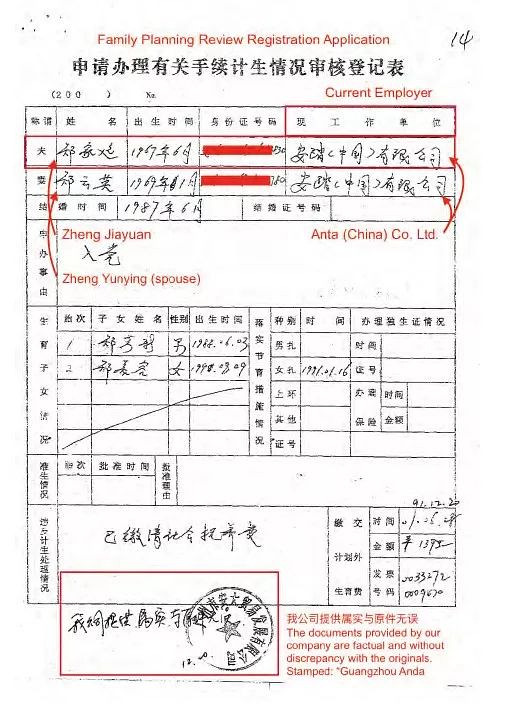 Family Planning Review Registration Application
14
申请办理有关手续计生情况审核登记表
(200 ) No.
Current Employer
称谓 姓名 出生时间 身份证号码 现工作单位
夫 1967年6月 安踏(中国)有限公司
妻 郑云英 1969年11月 安踏(中国)有限公司
结婚时间 1987年6月 结婚证号码
Zheng Jiayuan
Anta (China) Co. Ltd.
申办事由 入党
Zheng Yunying (spouse)
生育子女情况 胎次 子女姓名 性别 出生时间 落实节育措施情况 种别 时间 办理独生证情况
1 男 1988.06.03 男扎 时间
2 女 女扎 1991.01.16 证号
上环 办理保险 时间
其他 金额
证号
准生情况 胎次 批准时间 批准理由
违占计生处理情况 已缴清社会抚养费
缴交计划外生育费
91.12.20
时间
金额 ¥
发票号码 0033272
0009670
我公司提供属实与原件无误
The documents provided by our
company are factual and without
discrepancy with the originals.
Stamped: "Guangzhou Anda